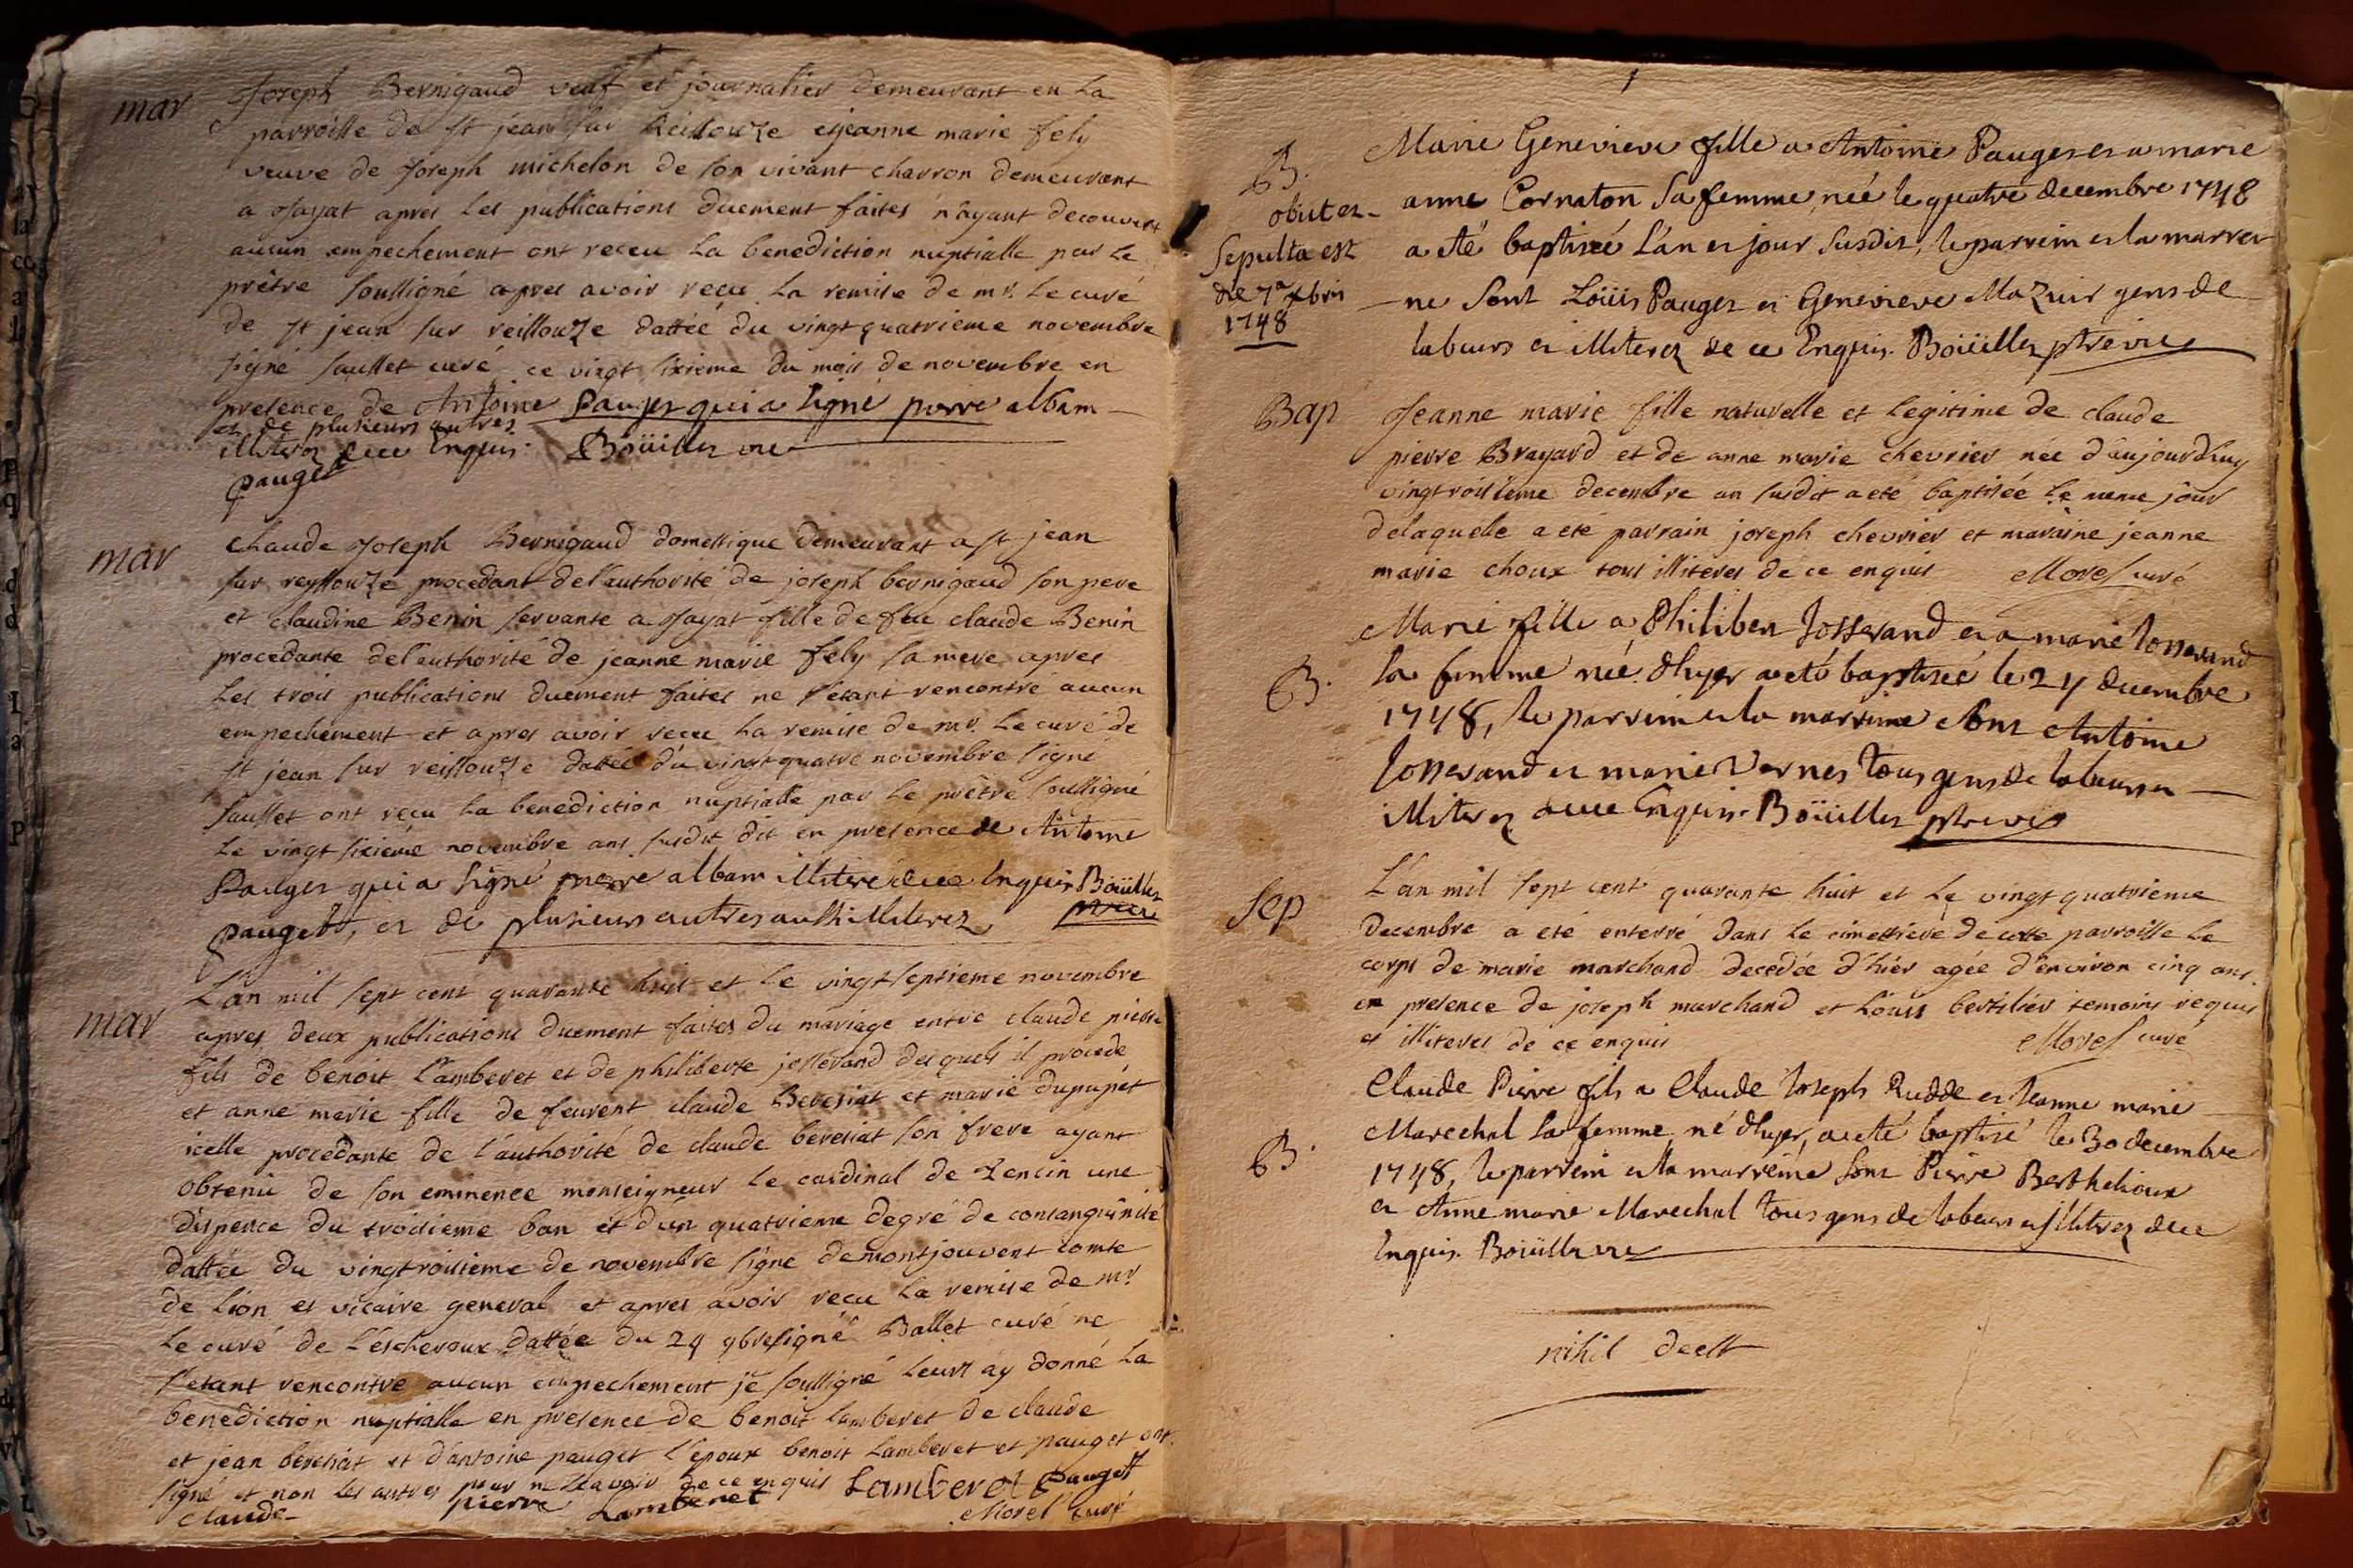 mar
Joseph Bernigaud veuf et journalier demeurant en la
parroisse de st jean sur Reissouze et jeanne marie fely
veuve de Joseph michelon de son vivant charron demeurant
a Jayat apres les publications duement faites n'ayant decouvert
aucun empechement ont receu la benediction nuptialle par le
prêtre soussigné apres avoir recu la remise de mr. le curé
de st jean sur reissouze dattéé du vingt quatrieme novembre
signé saullet curé ce vingt sixieme du mois de novembre en
presence de Antoine Pauget qui a signé pierre albam
et de plusieurs autres
illiterez de ce Enquis. Boüillez vic
pauget
mar
claude Joseph Bernigaud domestique demeurant a st jean
sur reyssouze procedant de l'authorité de joseph bernigaud son pere
et claudine Benin servante a Jayat fille de feu claude Benin
procedante de l'authorité de jeanne marie fely sa mere apres
les trois publications duement faites ne s'etant rencontré aucun
empechement et apres avoir recu la remise de mr. le curé de
st jean sur reissouze dattéé du vingt quatre novembre signé
saullet ont recu la benediction nuptialle par le prêtre soussigné
le vingt sixiéme novembre ans susdit dit en presence de Antoine
Pauget qui a signé pierre albam illiteré de ce Enquis Boüillez
pauget, et de plusieurs autres aussi illiterez
mar
L'an mil sept cent quarante huit et le vingt septieme novembre
apres deux publications duement faites du mariage entre claude pierre
fils de benoit Lamberet et de philiberte josserand desquels il procede
et anne marie fille de feurent claude Bereziat et marie dupupét
icelle procedante de l'authorité de claude bereziat son frere ayant
obtenu de son eminence monseigneur le cardinal de Tencin une
dispence du troisieme ban et d'un quatrieme degré de consanguinité
dattée du vingtroisieme de novembre signé demontjouvent comte
de lion et vicaire general et apres avoir recu la remise de mr
le curé de L'escheroux dattée du 24 9bre signé Ballet curé ne
s'etant rencontré aucun empechement je soussigné leurs ay donné la
benediction nuptialle en presence de benoit lamberet de claude
et jean bereziat et d'antoine pauget l'epoux benoit Lamberet et pauget ont
signé et non les autres pour ne sçavoir de ce enquis Lamberet Pauget
claude pierre Lamberet Morel curé
1
B.
obiit et
Sepulta est
die 7a xbris
1748
Marie Genevieve fille a Antoine Pauget et a marie
anne Cornaton sa femme née le quatre decembre 1748
a eté baptiséé L'an et jour susdit, le parrein et la marrei
ne sont Loüis Pauget et Genevieve Mazuir gens de
labeurs et illiterez de ce Enquis. Boüillez ptre vic
Bap
Jeanne marie fille naturelle et legitime de claude
pierre Brayard et de anne marie chevrier née d'aujourdhuy
vingtroisieme decembre an susdit a eté baptisée le meme jour
de laquelle a eté parrain joseph chevrier et maraine jeanne
marie choux tous illiteres de ce enquis Morel curé
B.
Marie fille a Philibert Josserand et a marie Josserand
sa femme née d'hyer a eté baptiséé le 24 decembre
1748, le parrein et la marreine sont Antoine
Josserand et marie Vernes tous gens de labeurs et
illiterez de ce Enquis. Boüillez ptre vic
Sep
L'an mil sept cent quarante huit et le vingt quatrieme
decembre a eté enterré dans le cimettiere de cette parroisse le
corps de marie marchand decedée d'hier agée d'environ cinq ans
en presence de joseph marchand et Louis bertilier temoins requis
et illiteres de ce enquis Morel curé
B.
Claude Pierre fils a Claude Joseph Rudde et Jeanne marie
Marechal sa femme né d'hyer, a eté baptisé le 30 decembre
1748, le parrein et la marreine sont Pierre Berthelioux
et Anne marie Marechal tous gens de labeurs et illiterez de ce
Enquis. Boüillez vic
nihil deest